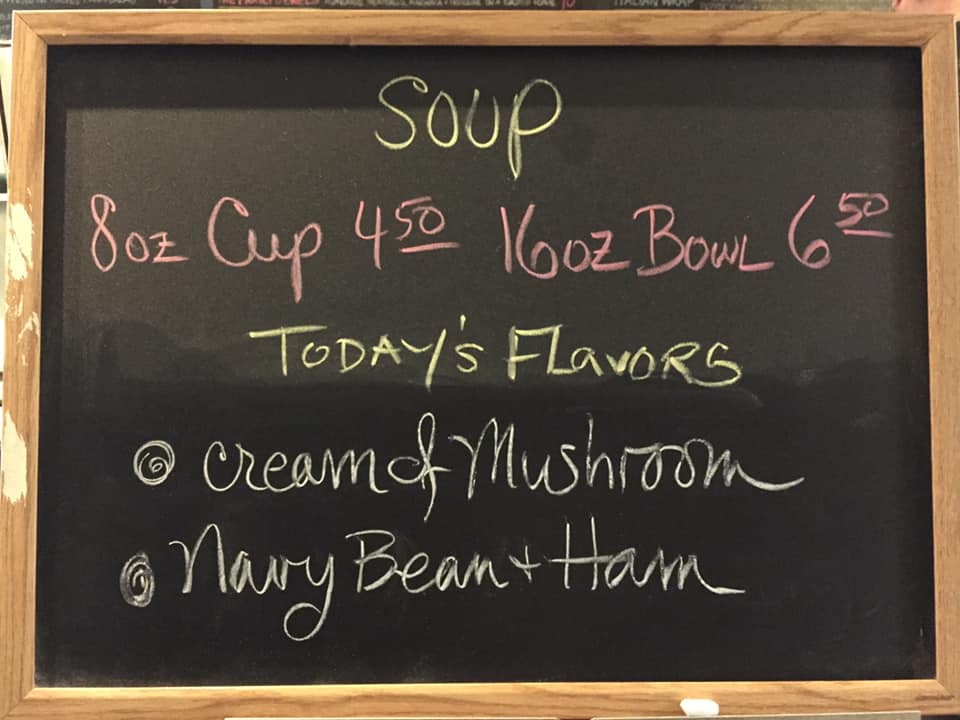 Soup
8oz Cup 4 50 16oz Bowl 6 50
Today's Flavors
Cream of Mushroom
Navy Bean + Ham